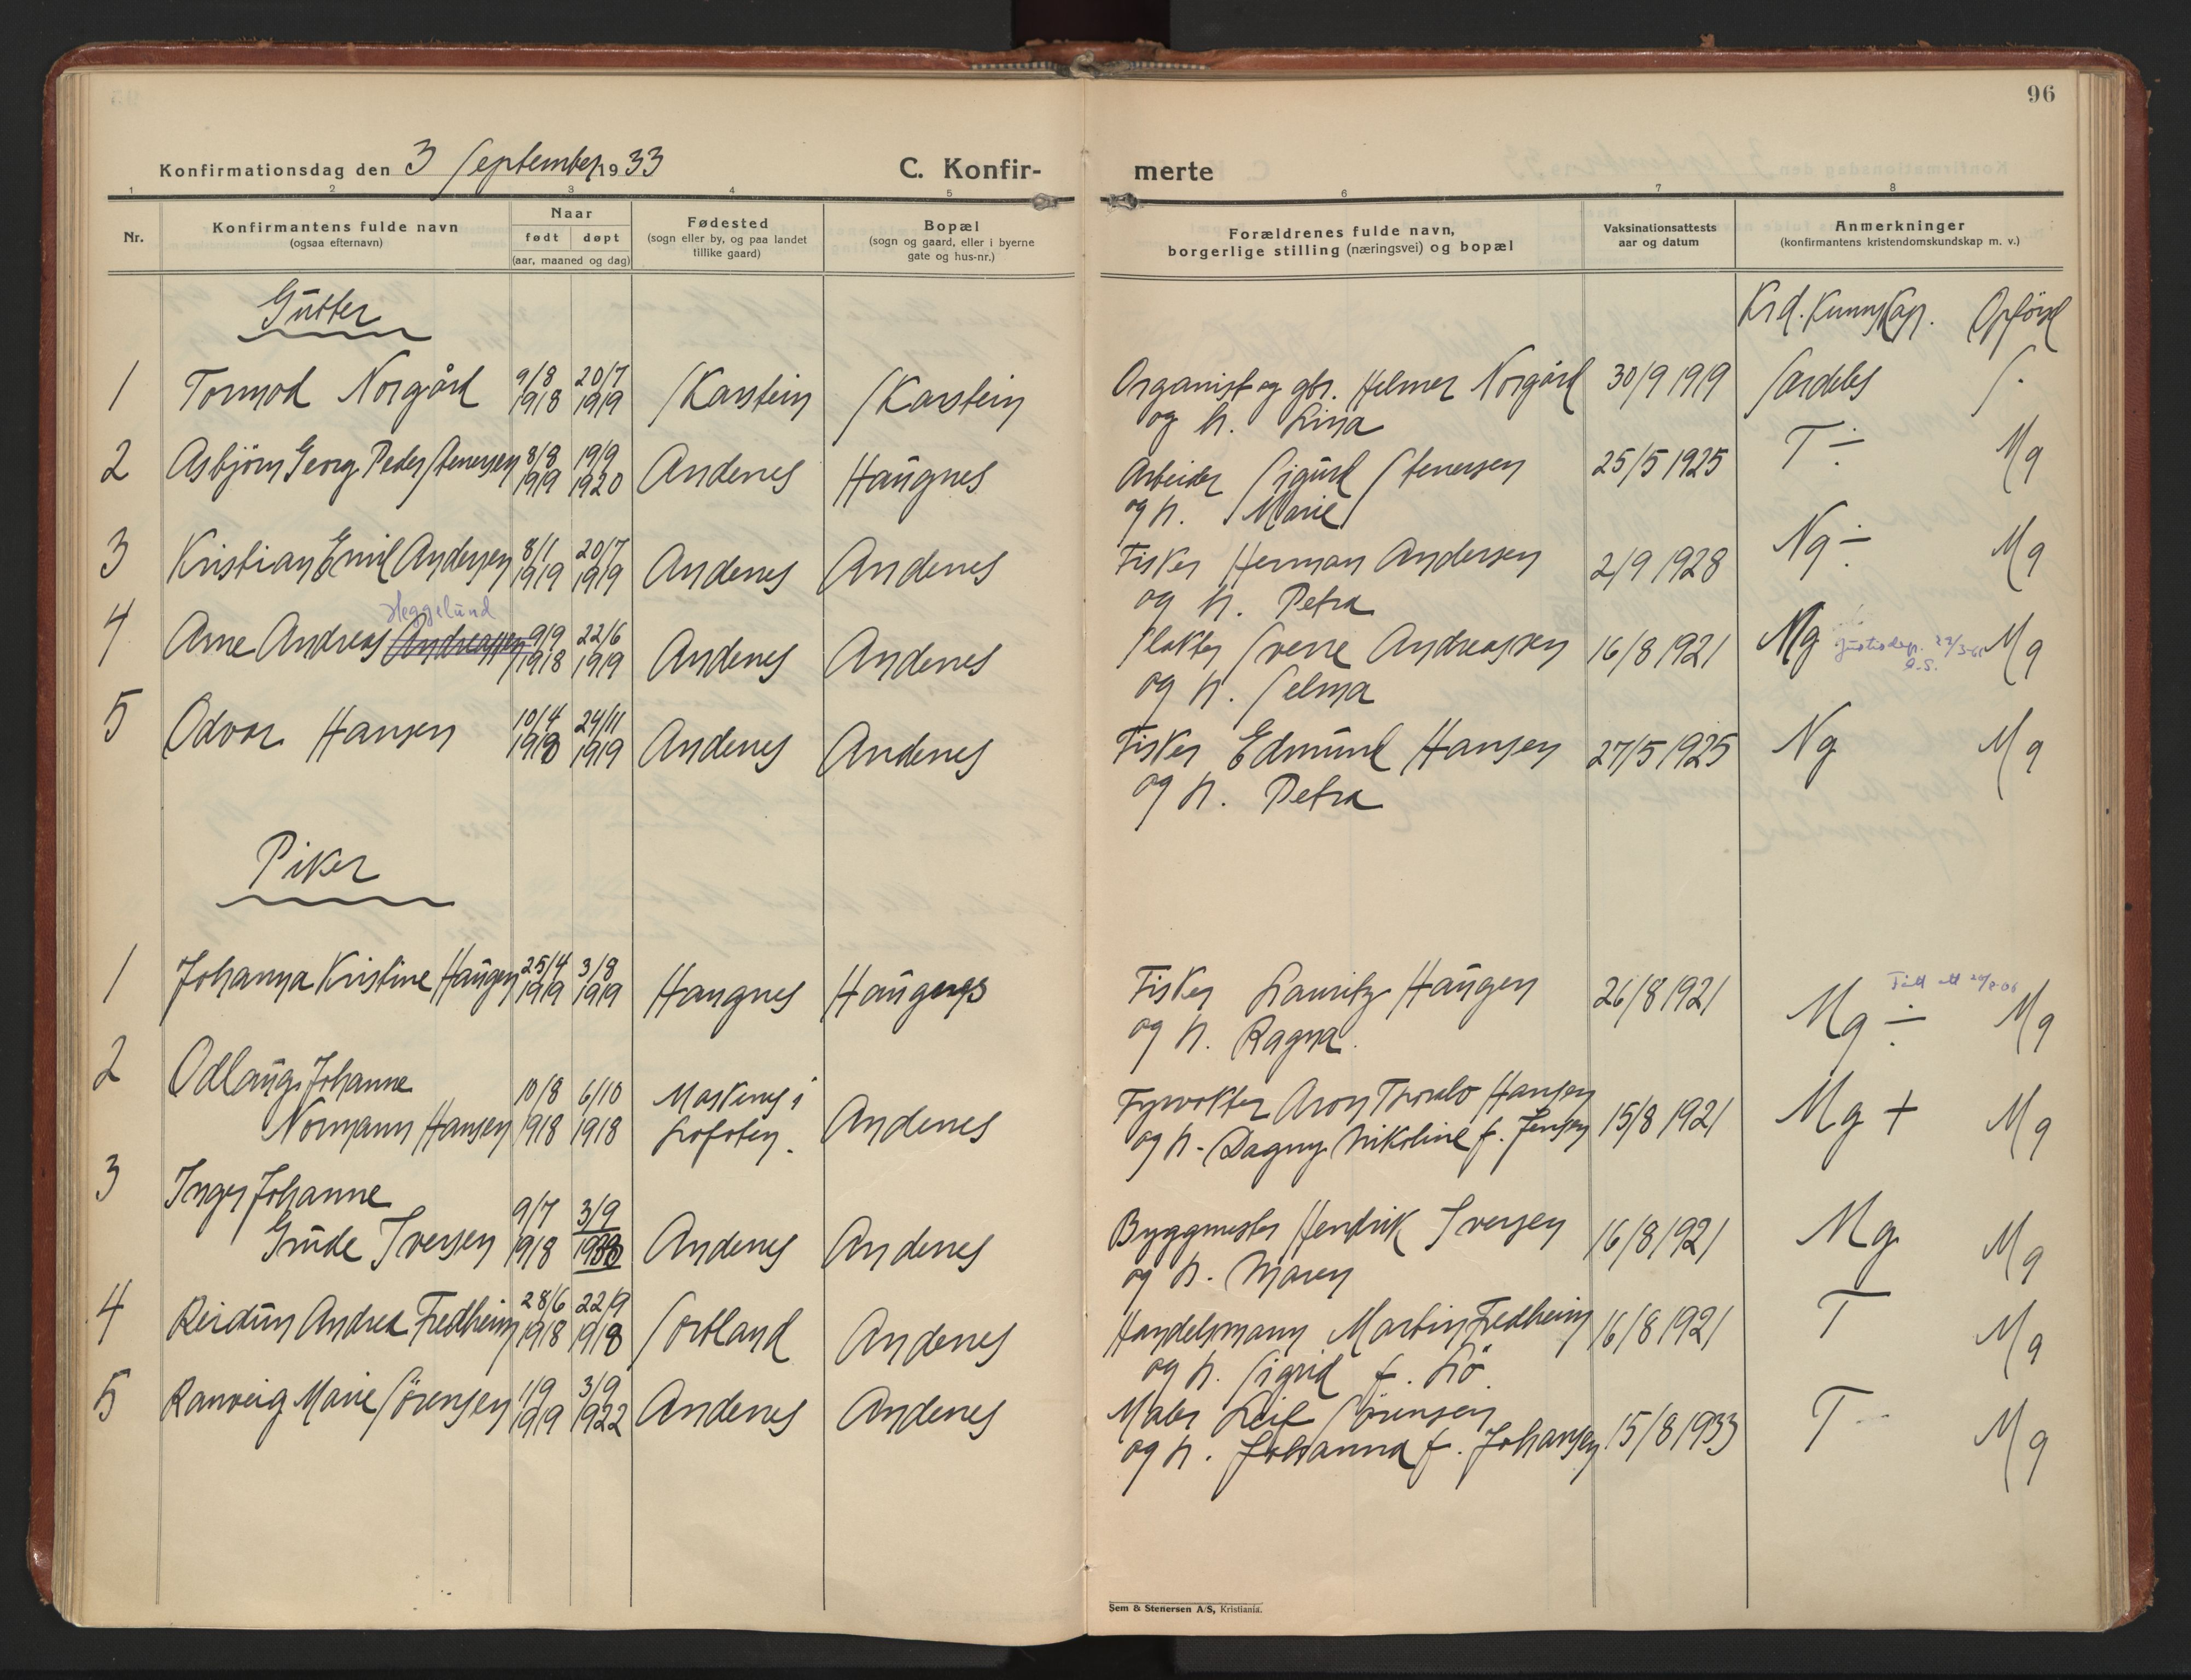 96
Konfirmationsdag den 3 September 1933
C. Konfir-
merte
1 2 3 4 5 6 7 8
Nr.
Konfirmantens fulde navn
(ogsaa efternavn)
Naar
født døpt
(aar, maaned og dag)
Fødested
(sogn eller by, og paa landet
tillike gaard)
Bopæl
(sogn og gaard, eller i byerne
gate og hus-nr.)
Forældrenes fulde navn,
borgerlige stilling (næringsvei) og bopæl
Vaksinationsattests
aar og datum
Anmerkninger
(konfirmantens kristendomskundskap m. v.)
Gutter
Krd. Kunnskap. Opførsel
1 Tormod Norgård 9/8 1918 20/7 1919 Skarstein Skarstein Organist og gbr. Helmer Norgård 30/9 1919 Særdeles S.
og h. Lina
2 Asbjørn Georg Peder Stenersen 8/8 1919 19/9 1920 Andenes Haugnes Arbeider Sigurd Stenersen 25/5 1925 T ÷ Mg
og h. Marie
3 Kristian Emil Andersen 8/1 1919 20/7 1919 Andenes Andenes Fisker Herman Andersen 2/9 1928 Ng ÷ Mg
og h. Petra
Heggelund
4 Arne Andreas Andreassen 9/9 1918 22/6 1919 Andenes Andenes Slakter Sverre Andreassen 16/8 1921 Mg Mg
Justisdep.
og h. Selma
5 Odvar Hansen 10/4 1918 24/11 1919 Andenes Andenes Fisker Edmund Hansen 27/5 1925 Ng Mg
og h. Petra
Piker
1 Johanna Kristine Haugen 25/4 1919 3/8 1919 Haugnes Haugnes Fisker Lauritz Haugen 26/8 1921 Mg ÷ Mg
og h. Ragna.
2 Odlaug Johanne
Normann Hansen 10/8 1918 6/10 1918 Moskenes i
Lofoten. Andenes Fyrvokter Aron Hansen 15/8 1921 Mg + Mg
og h. Dagny Nikoline f. Jensen
3 Inger Johanne
Grude Iversen 9/7 1918 3/9 Andenes Andenes Byggmester Hendrik Iversen 16/8 1921 Mg Mg
og h. Maren
4 Reidun Andrea Fredheim 28/6 1918 22/9 1918 Sortland Andenes Handelsmann Martin Fredheim 16/8 1921 T Mg
og h. Sigrid f. Lø.
5 Ranveig Marie Sørensen 1/9 1919 3/9 1922 Andenes Andenes Maler Leif Sørensen 15/8 1933 T Mg
og h. Johanna f. Johansen
Sem & Stenersen A/S, Kristiania.